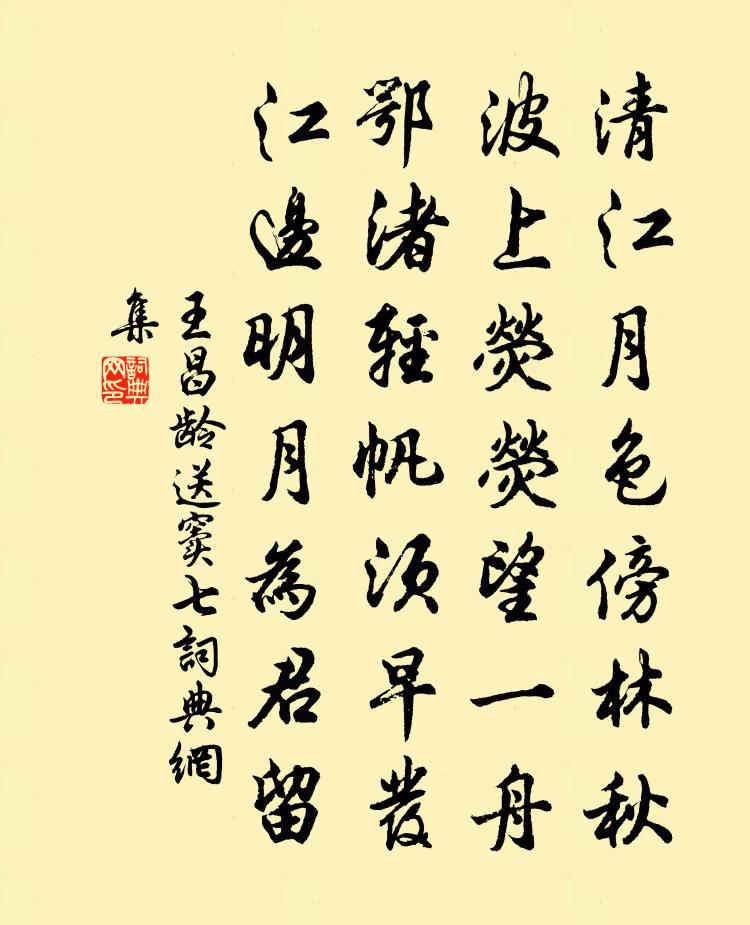 清江月色傍林秋
波上熒熒望一舟
鄂渚輕帆須早發
江邊明月為君留
王昌齡送竇七詞典網
集
詞典
网印